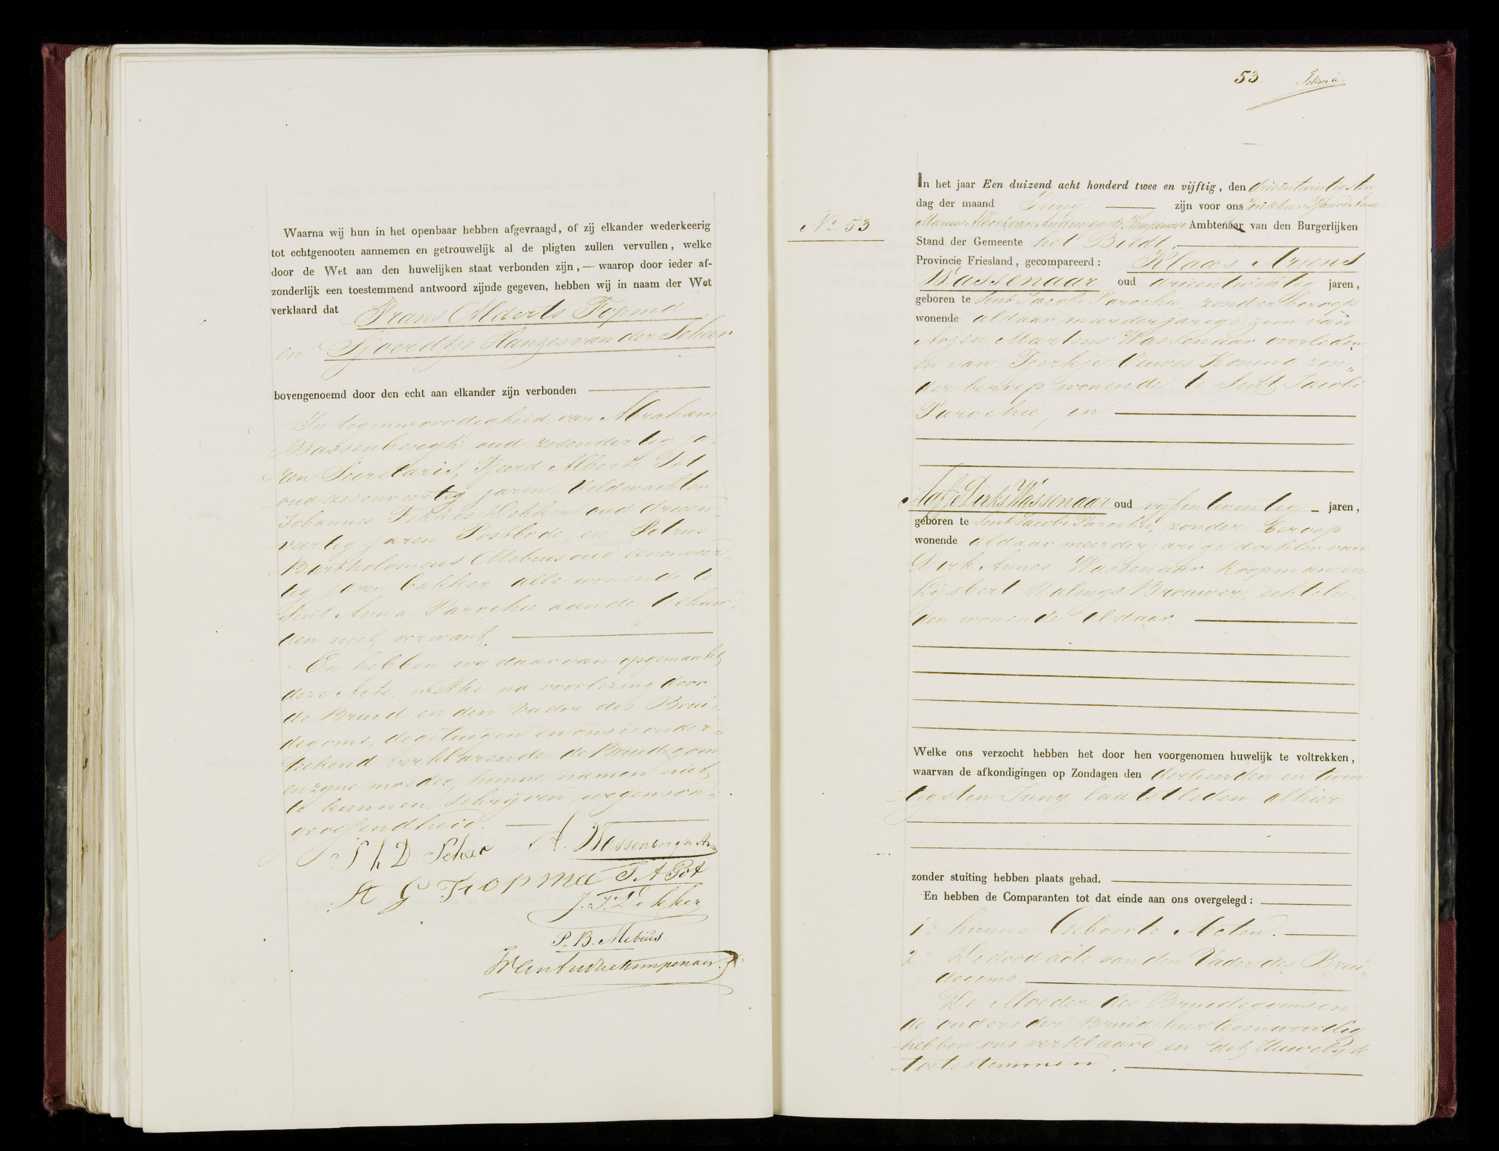 Waarna wij hun in het openbaar hebben afgevraagd, of zij elkander wederkeerig
tot echtgenooten aannemen en getrouwelijk al de pligten zullen vervullen, welke
door de Wet aan den huwelijken staat verbonden zijn, — waarop door ieder af-
zonderlijk een toestemmend antwoord zijnde gegeven, hebben wij in naam der Wet
verklaard dat Frans Alderts Fopma
en Sjoerdtje Hanzes van der Scheer
bovengenoemd door den echt aan elkander zijn verbonden
In tegenwoordigheid van Abraham
Wassenbergh oud zesendertig ja-
ren Secretaris, Tjeerd Alberts Pot
oud jaren Veldwachter
Johannes Dekker oud drieen-
veertig jaren Postbode, en Petrus
Bartholomeus Mebius oud eenenveer-
tig jaren bakker alle wonende te
Sint Anna Parochie aan de trouw-
den niet verwant.
En hebben wij daarvan opgemaakt
deze Acte, welke na voorlezing door
de Bruid en den Vader des Brui-
degoms, de getuigen en ons is onder-
teekend verklarende de Bruidegom
en zyne moeder, hunne namen niet
te kunnen schrijven wegens on-
geoefendheid.
S H D Scheer A. Wassenbergh Az
A G Fopma T A Pot
J. F. Dekker
P. B. Mebius
53
N.o 53
In het jaar Een duizend acht honderd twee en vijftig, den drieentwintigsten
dag der maand Juny zijn voor ons
Ambtenaar van den Burgerlijken
Stand der Gemeente het Bildt,
Provincie Friesland, gecompareerd: Klaas Ariens
Wassenaar oud drieentwintig jaren,
geboren te Sint Jacobi Parochie, zonder beroep
wonende aldaar meerderjarige zoon van
Arjen Martens Wassenaar overleden
en van Tjerkje Ouwes Koning zon-
der beroep wonende te Sint Jacobi
Parochie, en
Dirks Wassenaar oud vyfentwintig jaren,
geboren te Sint Jacobi Parochie zonder beroep
wonende aldaar meerderjarige dochter van
Dirk Annes Wassenaar koopman en
Gijsbert Brouwer, echtelie-
den wonende aldaar
Welke ons verzocht hebben het door hen voorgenomen huwelijk te voltrekken,
waarvan de afkondigingen op Zondagen den dertienden en twin-
tigsten Juny laatstleden alhier
zonder stuiting hebben plaats gehad.
En hebben de Comparanten tot dat einde aan ons overgelegd:
1.o hunne Geboorte Acten.
2.o De dood acte van den Vader des Brui-
degoms
De Moeder des Bruidegoms en
de ouders der Bruid hier tegenwoordig
hebben ons verklaard in dit Huwelijk
toetestemmen.